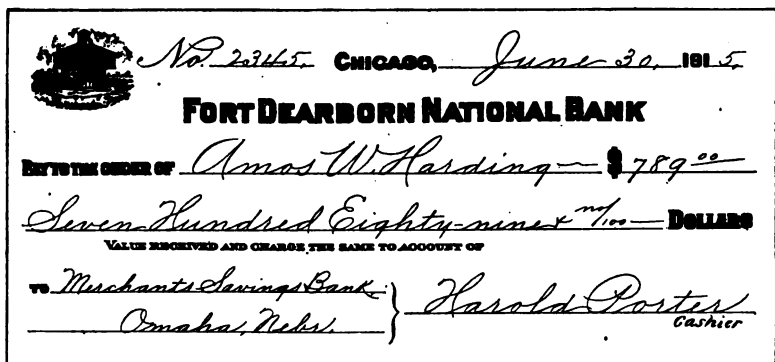 No. 2345. CHICAGO, June 30, 1915.
FORT DEARBORN NATIONAL BANK
PAY TO THE ORDER OF Amos W. Harding — $ 789 00
Seven Hundred Eighty-nine & no/100 — DOLLARS
VALUE RECEIVED AND CHARGE THE SAME TO ACCOUNT OF
TO Merchants Savings Bank } Harold Porter
Omaha, Nebr. Cashier